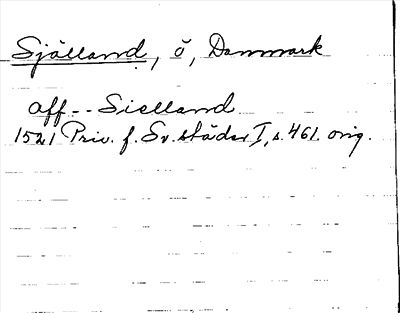 Själland, ö, Danmark
aff -- Sielland
1521 Priv. f. Sv. städer I, s. 461. orig.